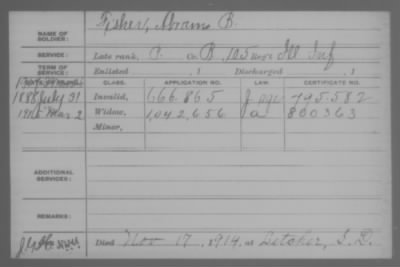 NAME OF SOLDIER: Fisher, Abrams B.
SERVICE: Late rank, P. Co. B, 105 Reg't Ill Inf
TERM OF SERVICE: Enlisted , 1 Discharged , 1
DATE OF FILING. CLASS. APPLICATION NO. LAW. CERTIFICATE NO.
1888 July 31 Invalid, 666.865 795.582
1915 Mar 2 Widow, 1,042,656 a 800363
Minor,
ADDITIONAL SERVICES:
REMARKS:
Died Nov 17, 1914, at Letcher, S.D.